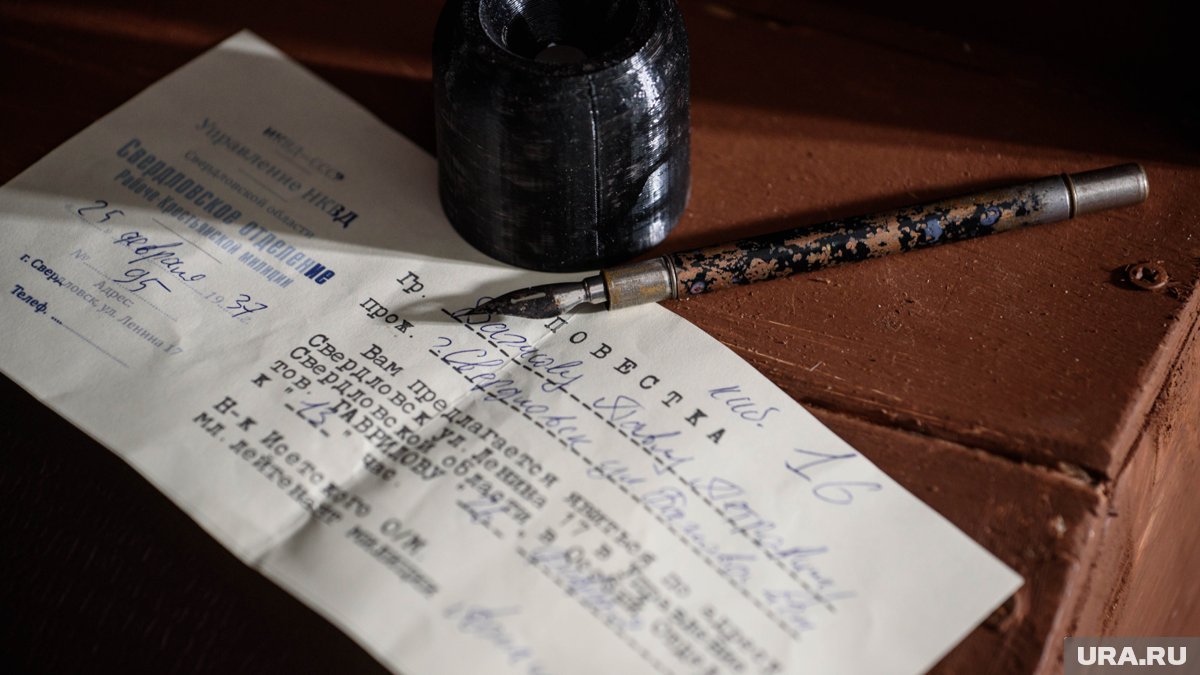 НКВД-СССР
Управление НКВД
Свердловской области
Свердловское отделение
Рабоче-Крестьянской милиции
"25" февраля 1937г.
№ 95
Адрес:
г. Свердловск, ул. Ленина 17
Телеф.
ПОВЕСТКА
каб. 16
Гр. Павлу
прож. г. Свердловск ул.
Вам предлагается явиться по адресу
Свердловск ул. Ленина 77 в Управление
Свердловской области, в Особый
тов. ГАВРИЛОВУ "22"
к "13" час.
Н-к Исетского О/М
мл. лейтенант милиции
URA.RU